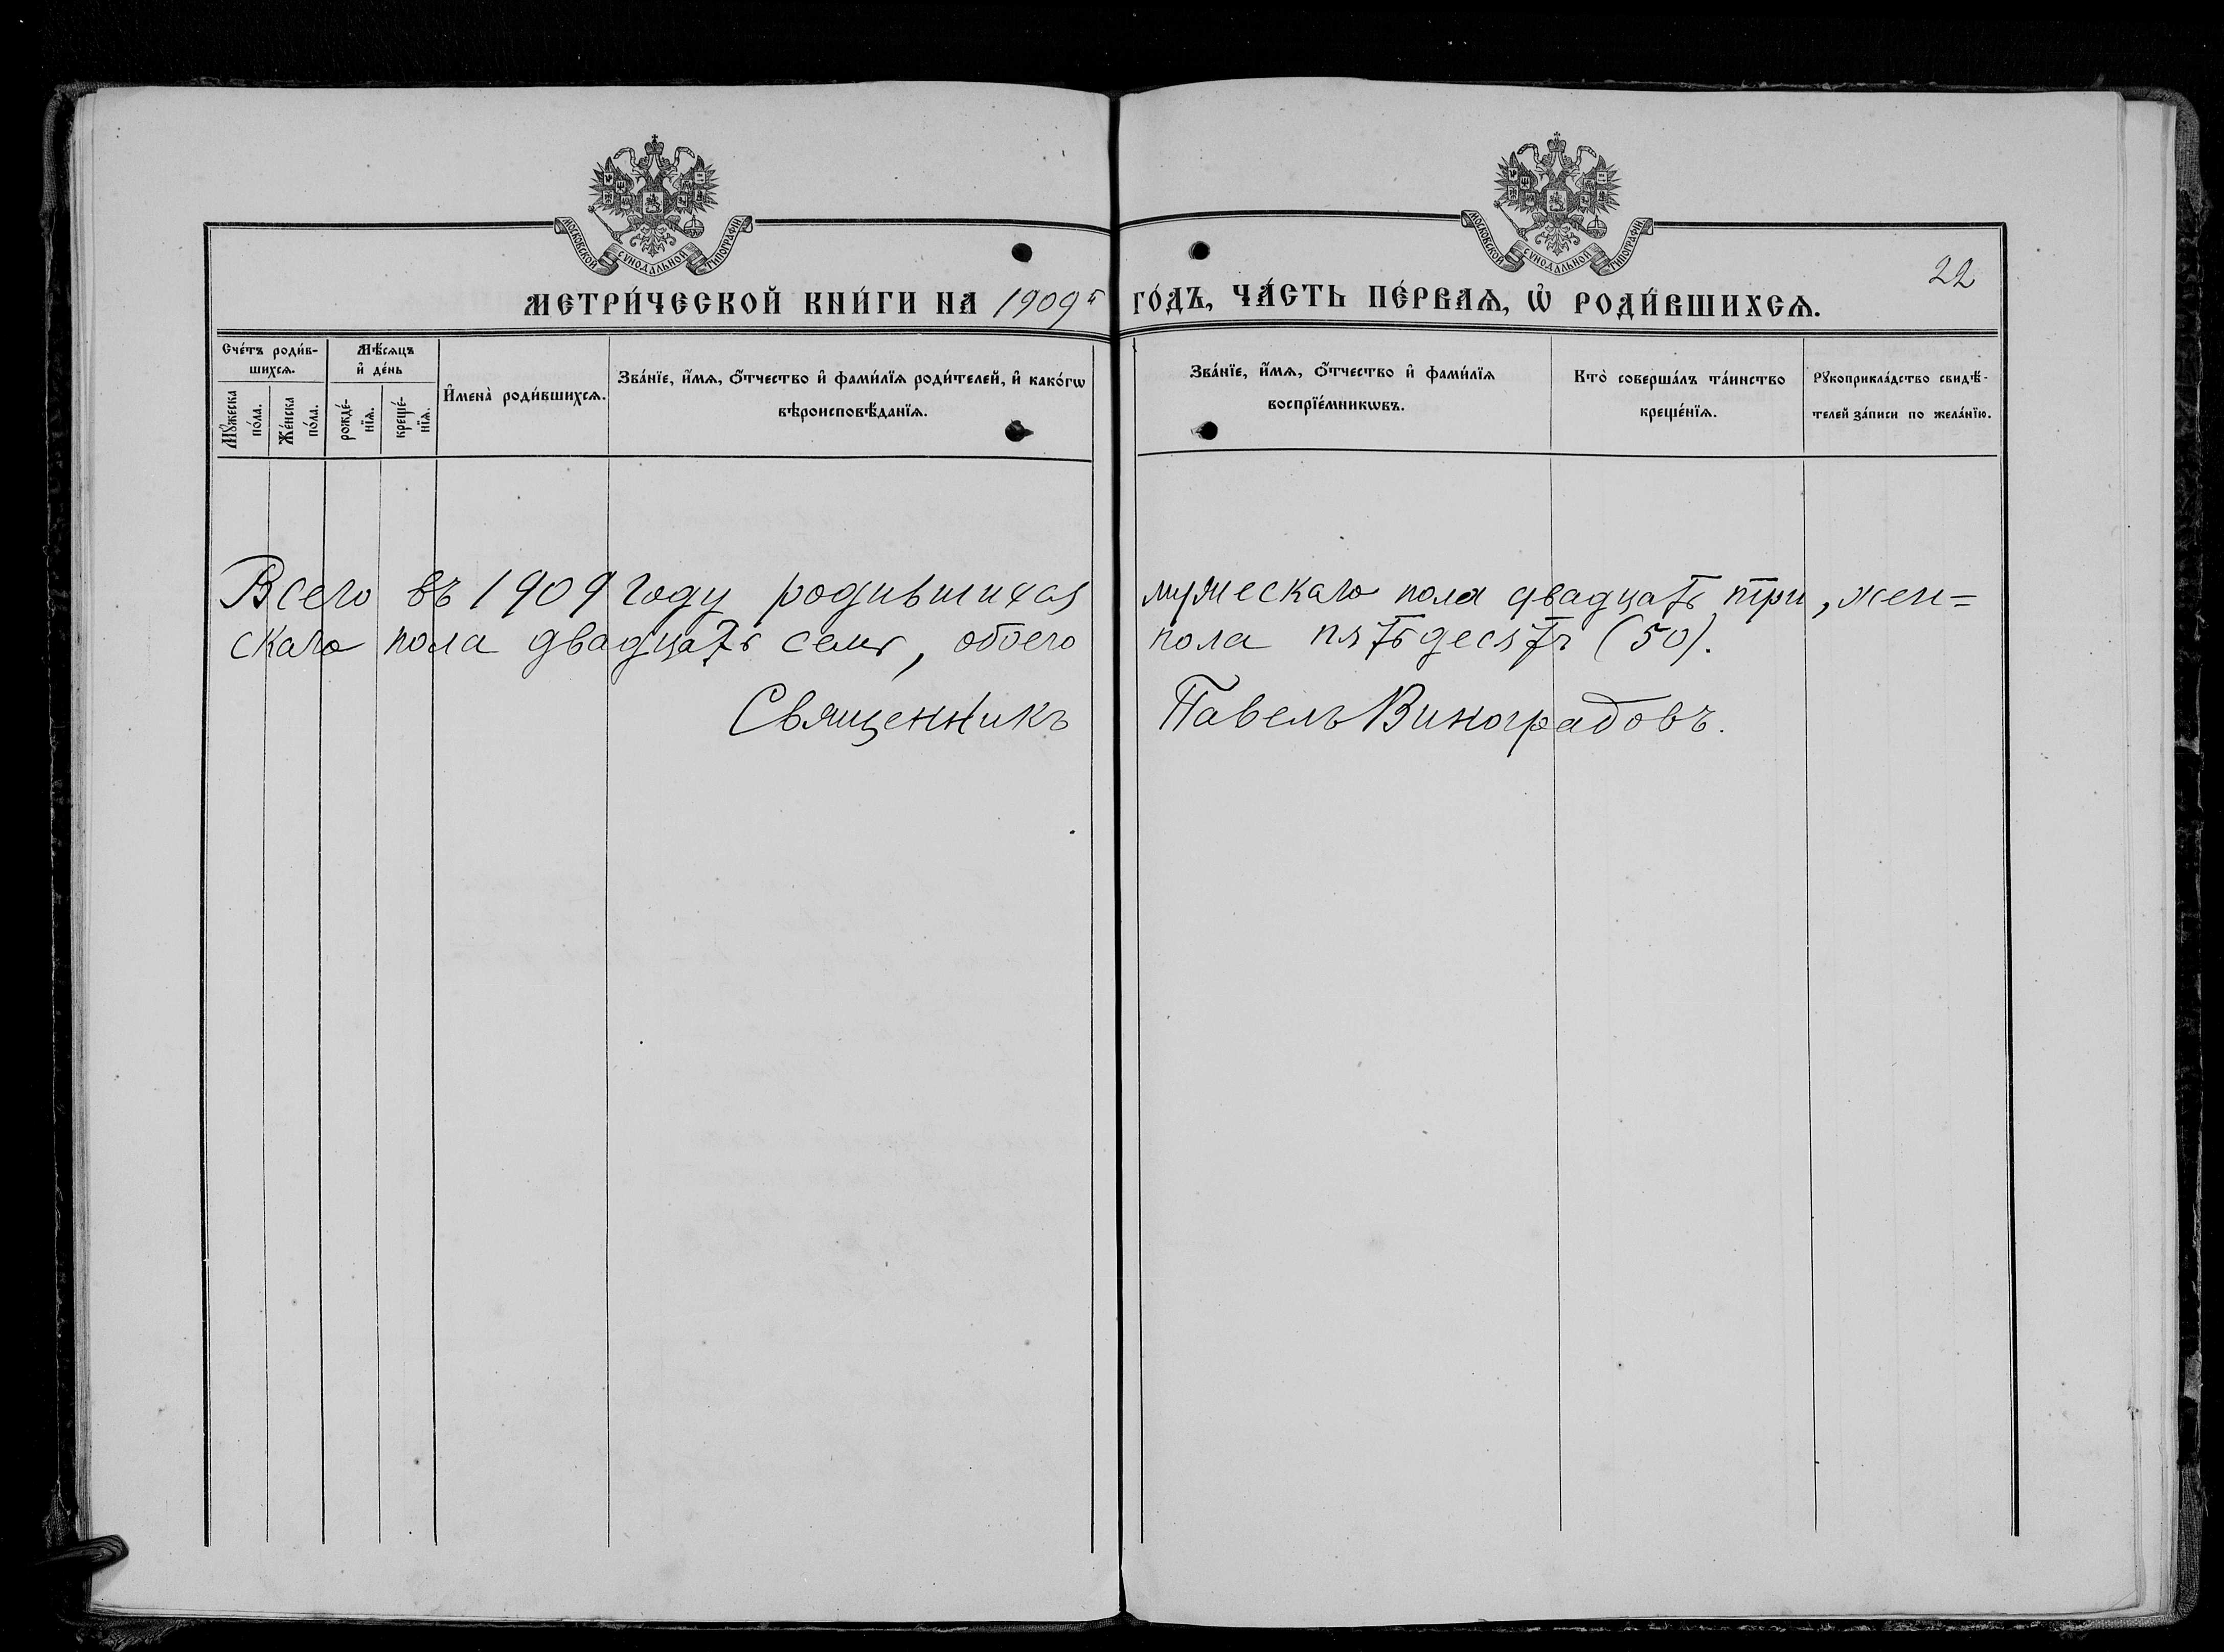 МОСКОВСКОЙ СѴНОДАЛЬНОЙ ТИПОГРАФІИ
МОСКОВСКОЙ СѴНОДАЛЬНОЙ ТИПОГРАФІИ
22
МЕТРИ́ЧЕСКОЙ КНИ́ГИ НА 1909й ГО́ДЪ, ЧА́СТЬ ПЕ́РВАѦ, Ѡ҆ РОДИ́ВШИХСѦ.
Сче́тъ роди́в-
шихсѧ.
Мꙋ́жеска
по́ла.
Же́нска
по́ла.
Мѣ́сѧцъ
и҆ де́нь
рожде́-
нїѧ.
креще́-
нїѧ.
И҆мена̀ роди́вшихсѧ.
Зва́нїе, и҆́мѧ, ѻ҆́тчество и҆ фами́лїѧ роди́телей, и҆ како́гѡ
вѣроисповѣ́данїѧ.
Зва́нїе, и҆́мѧ, ѻ҆́тчество и҆ фами́лїѧ
воспрїе́мникѡвъ.
Кто̀ соверша́лъ та́инство
креще́нїѧ.
Рꙋкоприкла́дство свидѣ́-
телей за́писи по жела́нїю.
Всего въ 1909 году родившихся мужескаго пола двадцать три, жен=
скаго пола двадцать семь, обоего пола пятьдесятъ (50).
Священникъ Павелъ Виноградовъ.